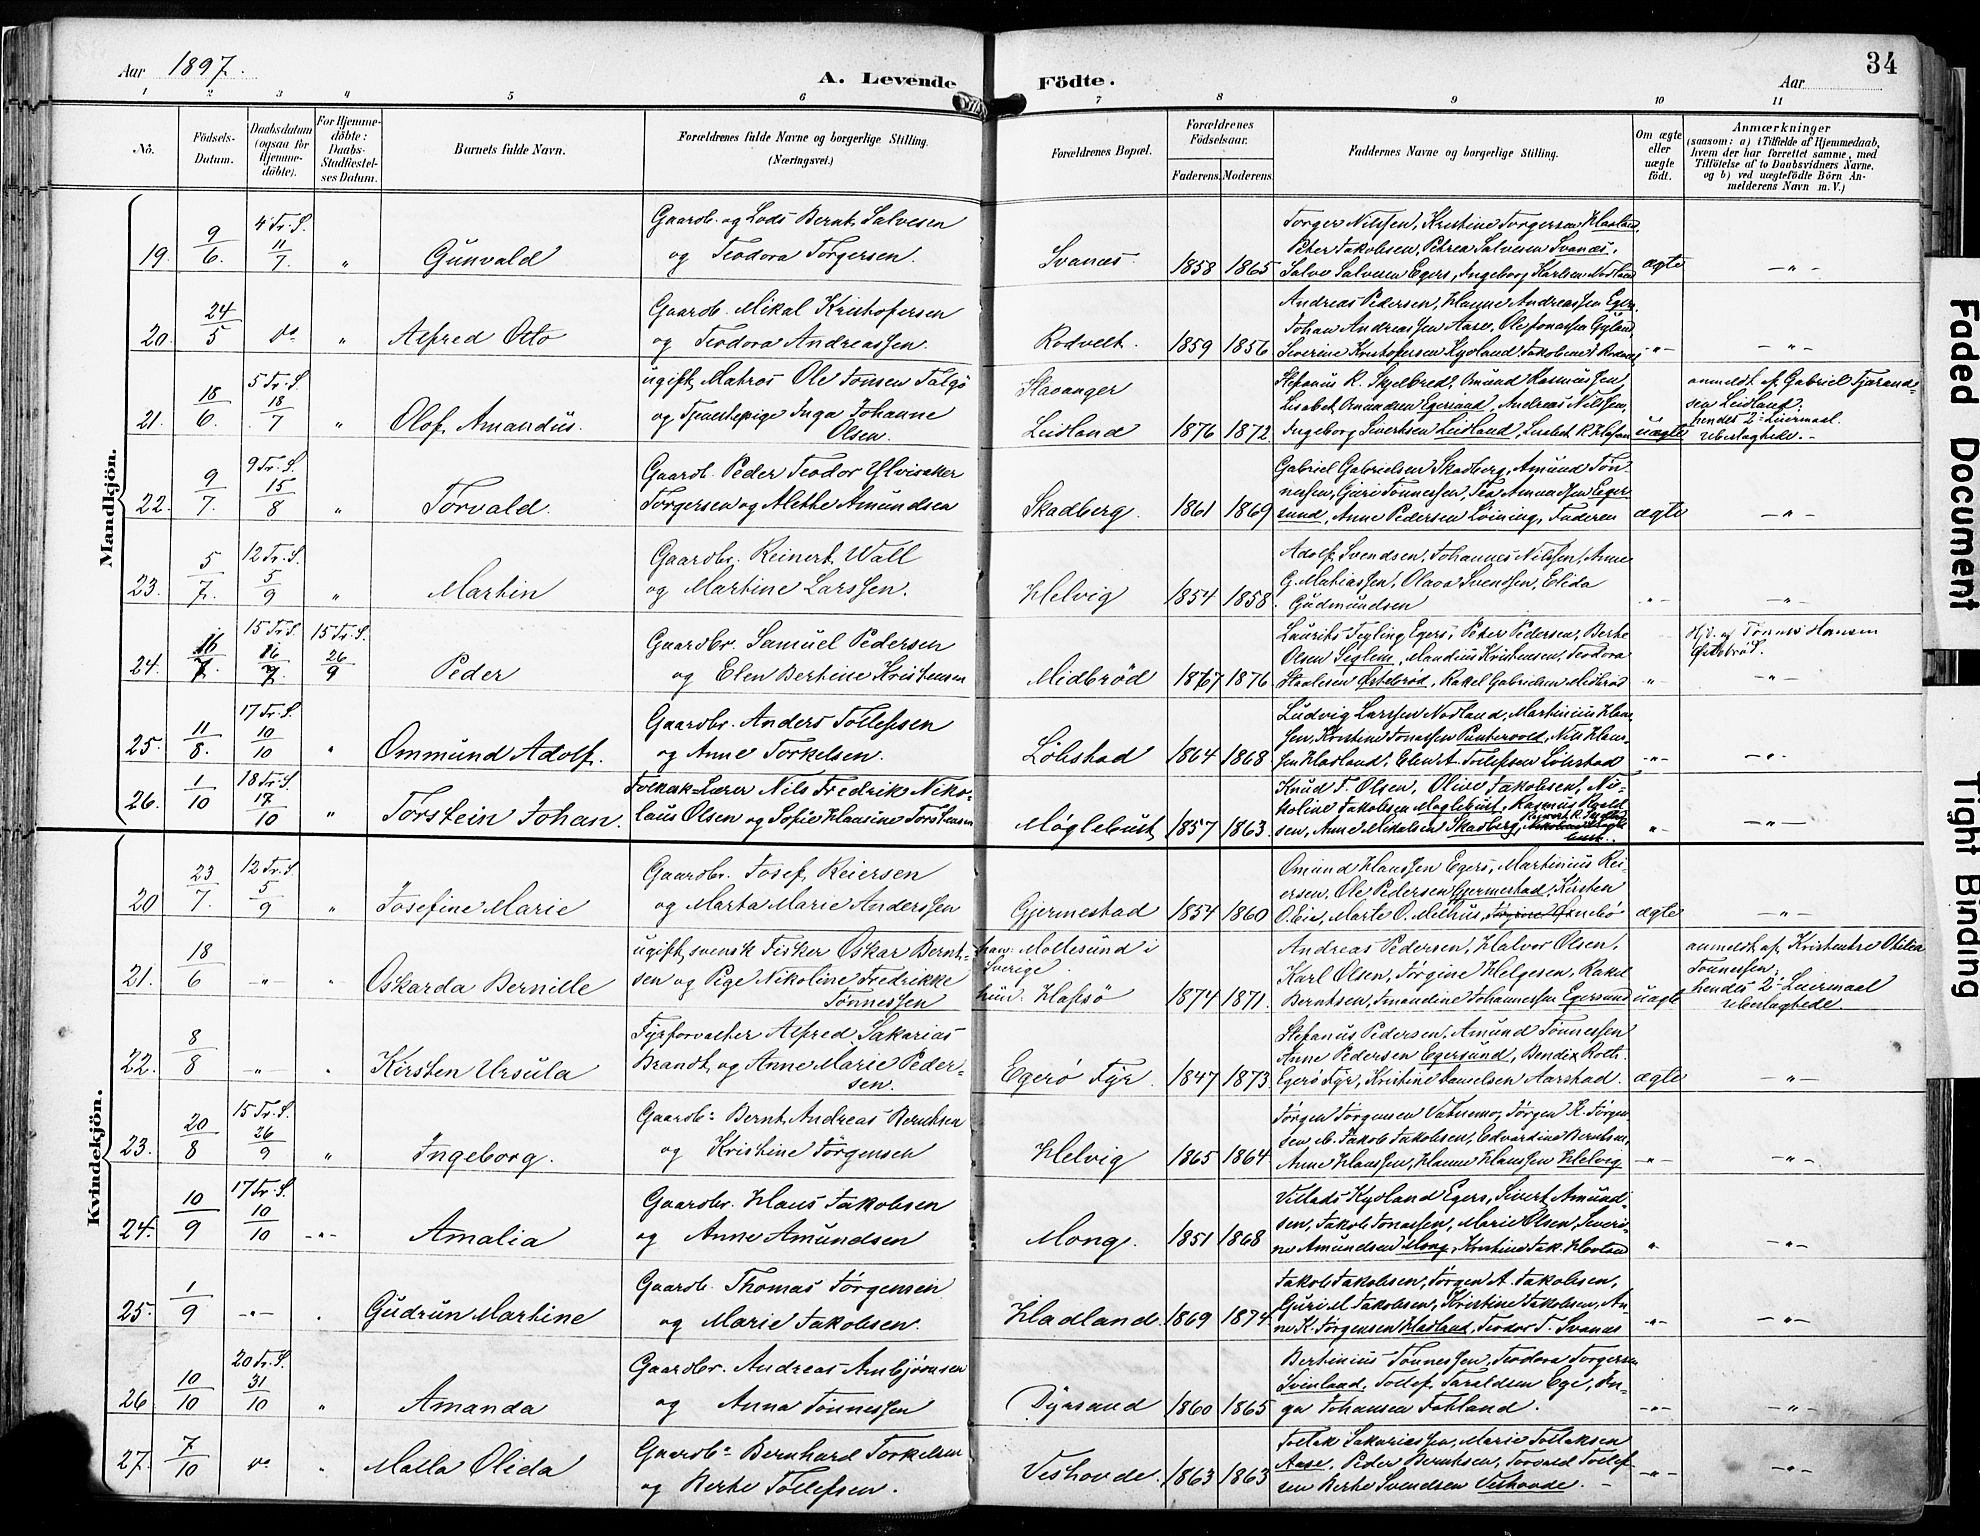 Aar 1897.
A. Levende Födte.
Aar
34
1 2 3 4 5 6 7 8 9 10 11
No.
Födsels-Datum.
Daabsdatum (ogsaa for Hjemme-döbte).
For Hjemme-döbte: Daabs-Stadfæstel-ses Datum.
Barnets fulde Navn.
Forældrenes fulde Navne og borgerlige Stilling. (Næringsvei.)
Forældrenes Bopæl.
Forældrenes Födselsaar.
Faderens. Moderens.
Faddernes Navne og borgerlige Stilling.
Om ægte eller uægte födt.
Anmærkninger
(saasom: a) i Tilfælde af Hjemmedaab,
hvem der har forrettet samme, med
Tilföielse af to Daabsvidners Navne,
og b) ved uægtefödte Börn An-
melderens Navn m. V.)
Mandkjön.
19. 9/6. 4 Tr. S. 11/7. " Gunvald
Gaardb. og Lods Bernt Salvesen
og Teodora Torgersen.
Svanæs. 1858 1865
Torger Nilssen, Kristine Torgersen Hadland
Peter Jakobsen, Petrea Salvesen Svanæs,
Salve Salvesen Egers, Ingeborg Karlsen Nodland
ægte -"-
20. 24/5 do " Alfred Otto
Gaardb. Mikal Kristofersen
og Teodora Andreassen.
Rodvelt. 1859 1856
Andreas Pedersen, Hanne Andreassen Eger,
Johan Andreassen Aase, Ole Jonassen Gyland,
Severine Kristofersen Kydland,
-"- -"-
21. 18/6. 5 Tr. S. 18/7 " Olof Amandus.
ugift Matros Ole Jonsen Talgö
og Tjenestepige Inga Johanne
Olsen.
Stavanger
Leidland 1876 1872
Stefanus R. Skjelbred, Omund Rasmussen,
Lisabet Omundsen Egersund, Andreas Nilssen,
Ingeborg Sivertsen Leidland,
uægte
anmeldt af Gabriel Tjerand-
sen Leidland.
hendes 2det Leiermaal.
Ubeslægtede.-
22. 9/7. 9 Tr. S. 15/8 " Torvald.
Gaardb. Peder Teodor Ylvisaker
Torgersen og Alethe Amundsen
Skadberg. 1861 1869
Gabriel Gabrielsen Skadberg, Amund Tön-
nessen, Guri Tönnessen, Tea Amundsen Eger-
sund, Anne Pedersen Löining, Faderen
ægte -"-
23. 5/7. 12 Tr. S. 5/9 " Martin
Gaardbr. Reinert Wall
og Martine Larssen.
Helvig 1854 1858.
Adolf Svendsen, Johannes Nilssen, Anne
G. Mathiassen, Olava Svendsen, Elida
Gudmundsen
-"- -"-
24. 16/7. 15 Tr. S. 16/7. 15 Tr. S. 26/9 Peder
Gaardbr. Samuel Pedersen
og Elen Bertine Kristensen
Midbröd 1867 1876
Laurits Feyling Egers, Peter Pedersen, Berte
Olsen Seglem, Mandius Kristensen, Teodora
Staalesen Östebröd, Rakel Gabrielsen Midbröd
"
Hjd. af Tönnes Hansen
Östebröd.
-"-
25. 11/8. 17 Tr. S. 10/10 " Ommund Adolf.
Gaardbr. Anders Tollefsen
og Anne Torkelsen.
Löhstad 1864 1868
Ludvig Larssen Nodland, Martinius Hans-
sen, Kristine Jonassen Puntervold, Nils Hans-
sen Hadland, Elen A. Tollefsen Löhstad
-"- -"-
26. 1/10 18 Tr. S. 17/10 " Torstein Johan.
Folkesk.-Lærer Nils Fredrik Niko-
laus Olsen og Sofie Hansine Torstensen
Møglebust 1857 1863
Knud F. Olsen, Olive Jakobsen, Ni-
koline Jakobsen Møglebust, Rasmus
sen, Anne Mikalsen Skadberg,
" -"-
Kvindekjön.
20 23/7. 12 Tr. S. 5/9 " Josefine Marie
Gaardbr. Josef Reiersen
og Marta Marie Anderssen
Gjermestad 1854 1860
Omund Hanssen Egers, Martinius Rei-
ersen, Ole Pedersen Gjermestad, Kirsten
O. Eie, Marte O. Melhus,
ægte -"-
21. 18/6 -"- " Oskarda Bernille
ugift svensk Fisker Oskar Bernt-
sen og Pige Nikoline Fredrikke
Tönnessen
han: Mollesund i
Sverige.
hun. Hafsö 1874 1871.
Andreas Pedersen, Halvor Olsen,
Karl Olsen, Jörgine Helgesen, Rakel
Berntsen, Amandine Johannessen Egersund
uægte
anmeldt af Kristentse Otilia
Tönnessen;
hendes 2det Leiermaal
Ubeslægtede.
22. 8/8 -"- " Kirsten Ursula
Fyrforvalter Alfred Sakarias
Brandt og Anne Marie Peder-
sen.
Egerö Fyr. 1847 1873
Stefanus Pedersen, Amund Tönnessen
Anne Pedersen Egersund, Bendix Roth.
Egerö Fyr, Kristine Danielsen Aarstad.
ægte -"-
23. 20/8 15 Tr. S. 26/9 " Ingeborg.
Gaardb: Bernt Andreas Berntsen
og Kristine Jörgensen
Helvig 1865 1864
Jörgen Jörgensen Vatnemo, Jörgen K. Jörgen-
sen, Jakob Jakobsen, Edvardine Berntsen,
Anne Hanssen, Hanne Hanssen Helvig
-"- -"-
24. 10/9 17 Tr. S. 10/10 -"- Amalia
Gaardbr. Hans Jakobsen
og Anne Amundsen
Mong. 1851 1868
Villads Kydland Egers, Sivert Amund-
sen, Jakob Jonassen, Marie Olsen, Severi-
ne Amundsen Mong, Kristine Jak. Hovland
" -"-
25. 1/9 -"- " Gudrun Martine
Gaardb. Thomas Jörgensen
og Marie Jakobsen.
Hadland. 1869 1874
Jakob Jakobsen, Jörgen A. Jakobsen,
Guri M. Jakobsen, Kristine Jakobsen, An-
ne K. Jörgensen Hadland, Teodor T. Svanæs
-"- -"-
26 10/10 20 Tr. S. 31/10 " Amanda
Gaardbr. Andreas Anbjörnsen
og Anna Tönnessen
Dyrsand 1860 1865
Bertinius Tönnessen, Teodora Torgersen
Svinland, Tollef Taraldsen Ege, In-
ga Johansen Fotland.
-"- -"-
27. 7/10 do " Malla Olida
Gaardb: Bernhard Torkelsen
og Berte Tollefsen.
Veshovde. 1863 1863
Tollak Sakariassen, Marie Tollaksen
Aase, Peder Berntsen, Torvald Tollef-
sen Berte Svendsen Veshovde.
-"- -"-
Faded Document
Tight Binding